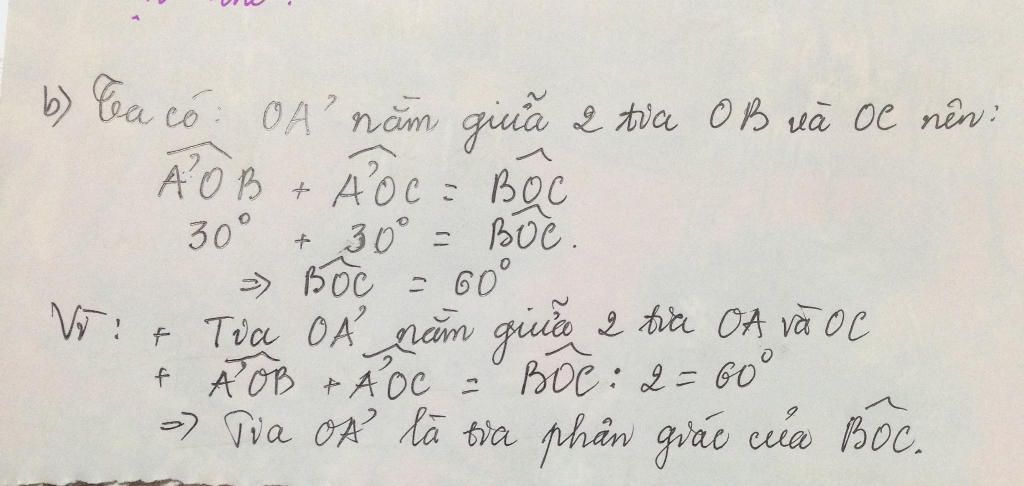 b) Ta có: OA' nằm giữa 2 tia OB và OC nên:
A'OB + A'OC = BOC
30° + 30° = BOC.
⇒ BOC = 60°
Vì: + Tia OA' nằm giữa 2 tia OA và OC
+ A'OB + A'OC = BOC : 2 = 60°
⇒ Tia OA' là tia phân giác của BOC.